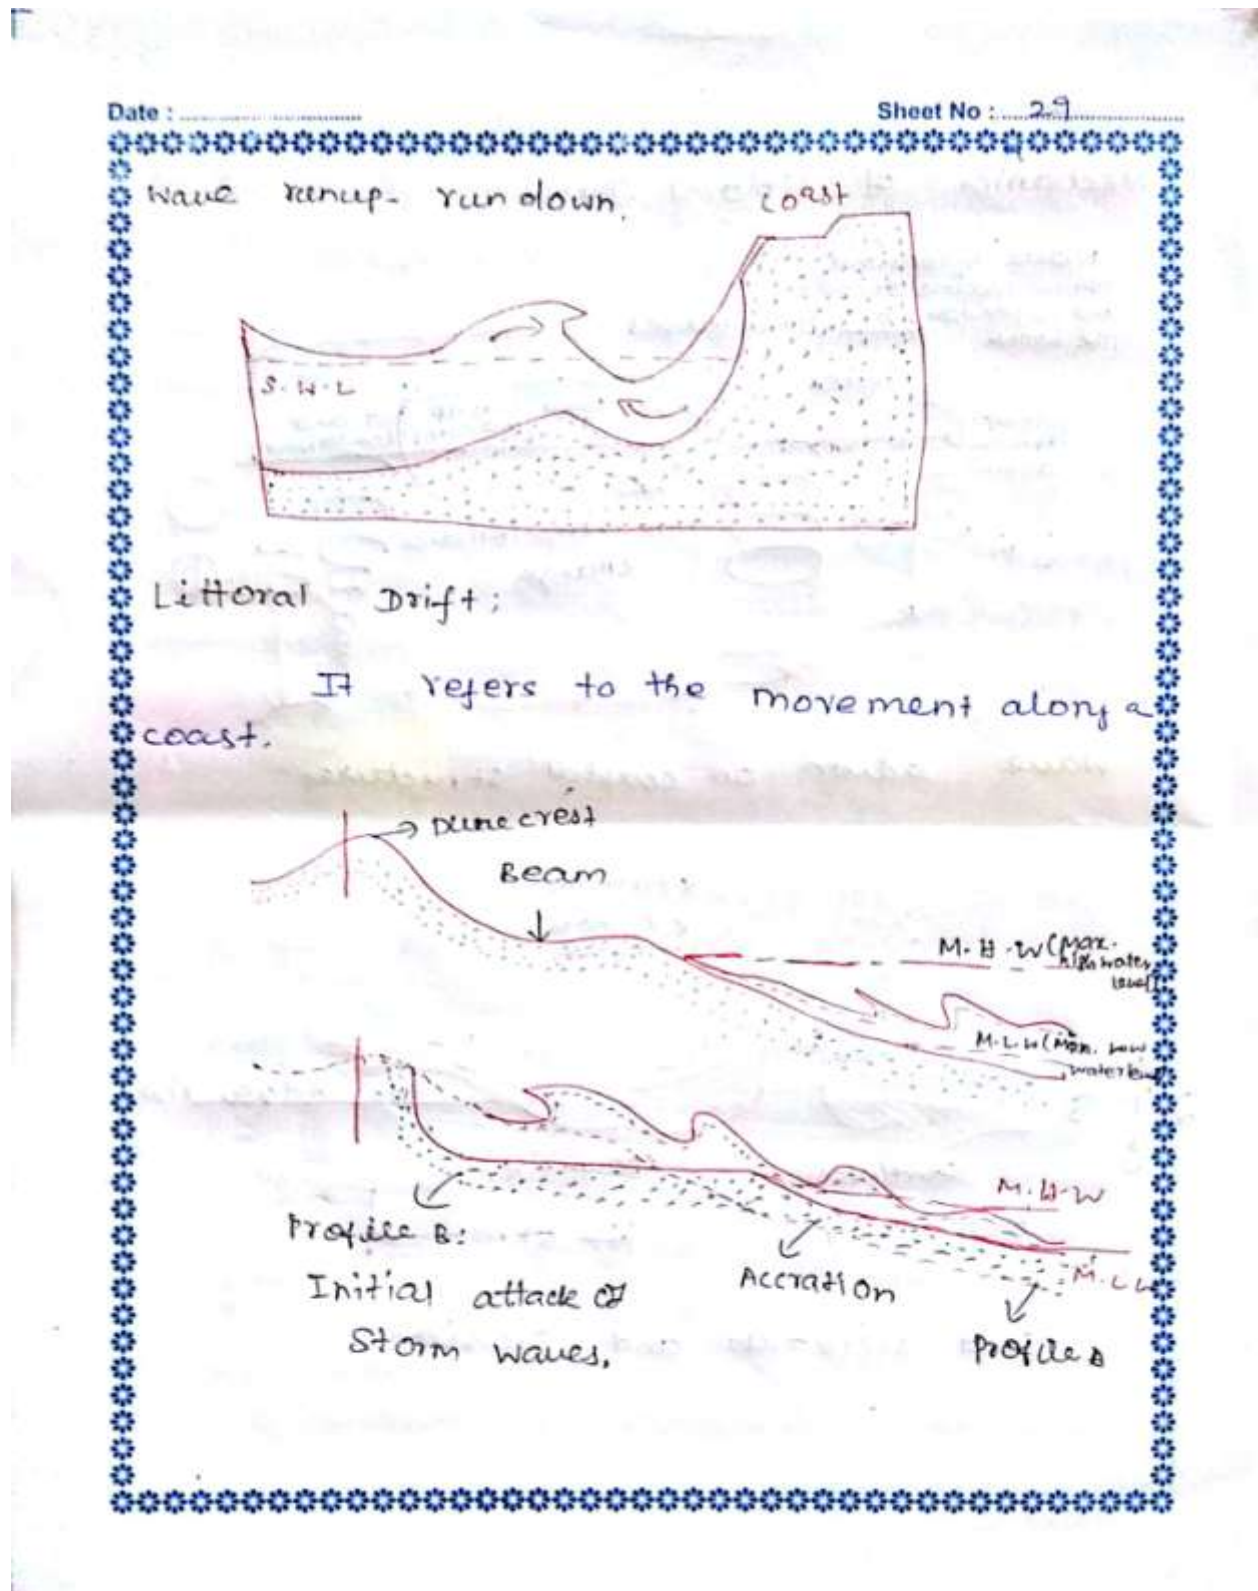 Date :
Sheet No : 29
Wave runup- run down.
Coast
S.W.L
Littoral Drift:
It refers to the movement along a
coast.
Dune crest
Beam
M.H.W (Max.
high water
level)
M.L.W (Max. low
water
Profile B:
Initial attack of
Storm waves.
M.H.W
Accration
M.L.W
Profile A